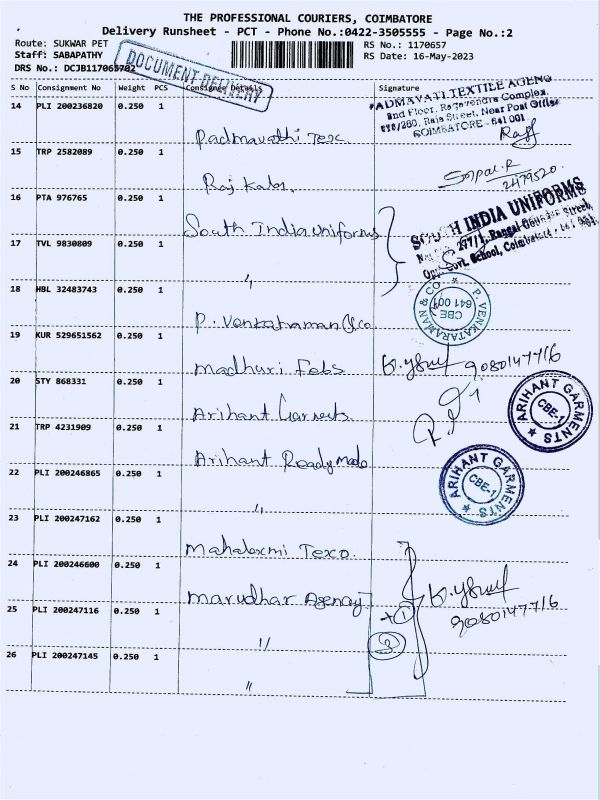 THE PROFESSIONAL COURIERS, COIMBATORE
Delivery Runsheet - PCT - Phone No.:0422-3505555 - Page No.:2
Route: SUKWAR PET
RS No.: 1170657
Staff: SABAPATHY
RS Date: 16-May-2023
DRS No.: DCJB117065702
DOCUMENT DELIVERY
S No Consignment No Weight PCS Consignee Details Signature
14 PLI 200236820 0.250 1
Padmavathi Tex
PADMAVATI TEXTILE AGENC
2nd Floor, Ragavendra Complex,
Raja Street, Near Post Office
COIMBATORE - 641 001
15 TRP 2582089 0.250 1
Raj Kala
Gopal.R
2479520
16 PTA 976765 0.250 1
South India Uniforms
SOUTH INDIA UNIFORMS
277/1, Rangai Gounder Street,
Opp. Govt. School, Coimbatore - 641 001.
17 TVL 9830809 0.250 1
"
18 HBL 32483743 0.250 1
P. Venkatraman & Co
P. VENKATARAMAN & CO
CBE
641 001
19 KUR 529651562 0.250 1
Madhuri Febs
9080147716
20 STY 868331 0.250 1
Arihant Garments
ARIHANT GARMENTS
CBE-1
21 TRP 4231909 0.250 1
Arihant Readymade
22 PLI 200246865 0.250 1
"
ARIHANT GARMENTS
CBE-1
23 PLI 200247162 0.250 1
Mahalaxmi Texo.
24 PLI 200246600 0.250 1
Marudhar Agenay
9080147716
25 PLI 200247116 0.250 1
"
1
3
26 PLI 200247145 0.250 1
"